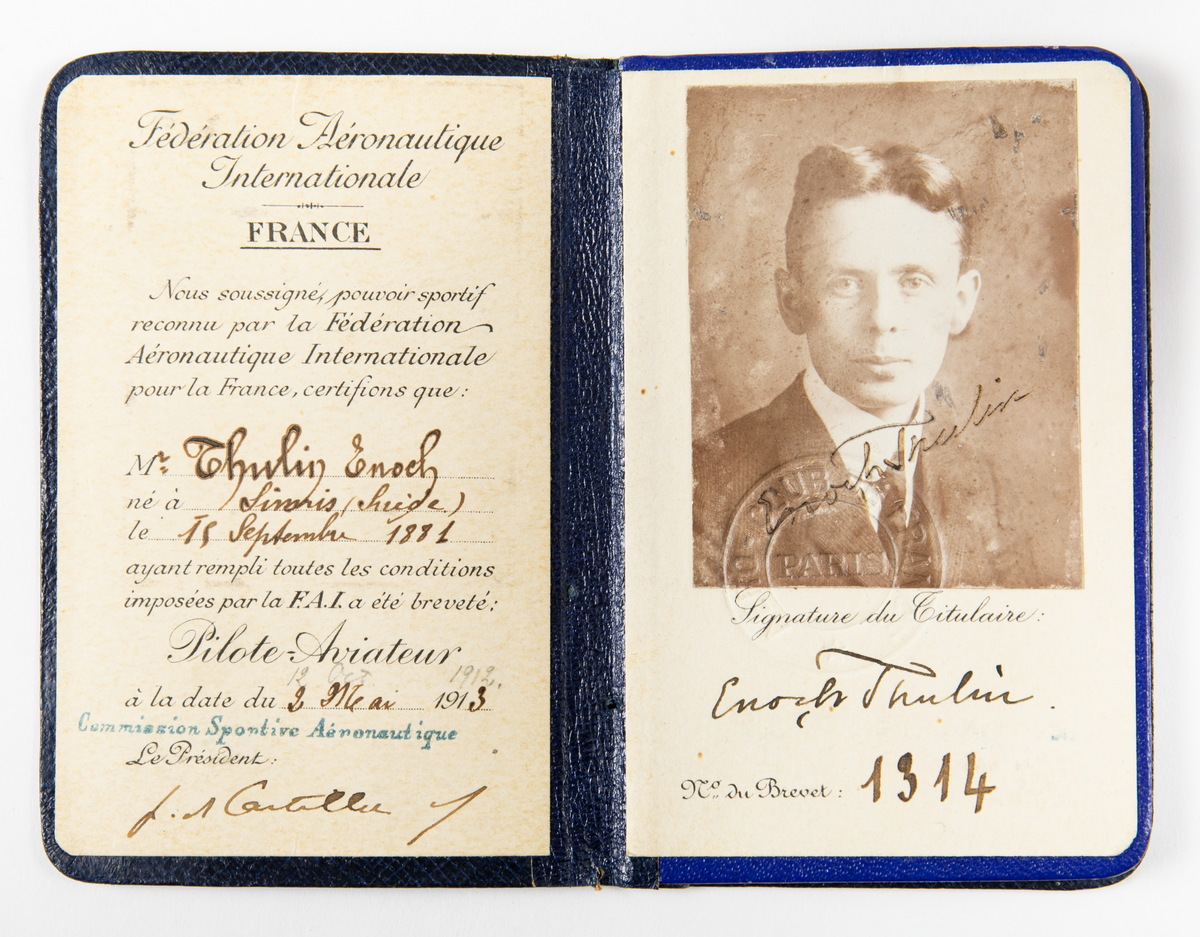 Fédération Aéronautique
Internationale
FRANCE
Nous soussigné, pouvoir sportif
reconnu par la Fédération
Aéronautique Internationale
pour la France, certifions que:
Mr. Thulin Enoch
né à Simris (Suède)
le 15 Septembre 1881
ayant rempli toutes les conditions
imposées par la F.A.I. a été breveté:
Pilote-Aviateur
12 Oct 1912.
à la date du 2 Mai 1913
Commission Sportive Aéronautique
Le Président:
Enoch Thulin
PARIS
Signature du Titulaire:
Enoch Thulin.
No. du Brevet: 1314